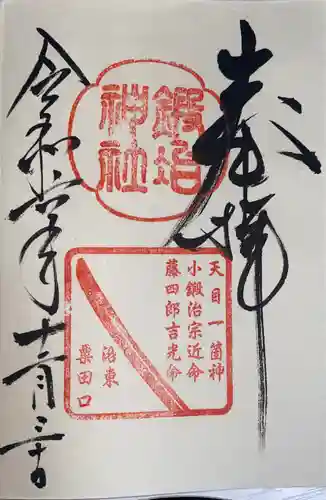 奉拝
鍛冶
神社
天目一箇神
小鍛治宗近命
藤四郎吉光命
洛東
粟田口
令和六年十二月三十日